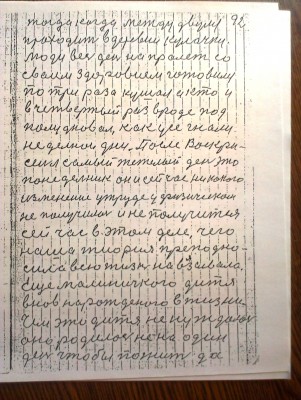 92
тогда когда между двумя
проходит в деревни кулачки.
люди вес ден на пролет со
своим здоровием готовили
по три раза кушал а кто и
в четвертый раз вроде под
полудновал, как уже гнали
неделноя дни, После Воскри-
сеня самый тежелай ден это
понеделник они сейчас никокого
изменение у труде у физическом
не получилос и не получится
сей час в этом деле, чего
наша тиория преподно-
сила всю жизн называла.
еще маленичкого дитя
внов нарожденого в жизни
Чем это дитя не нуждалос
оно родилос не на один
ден чтобы пожит да